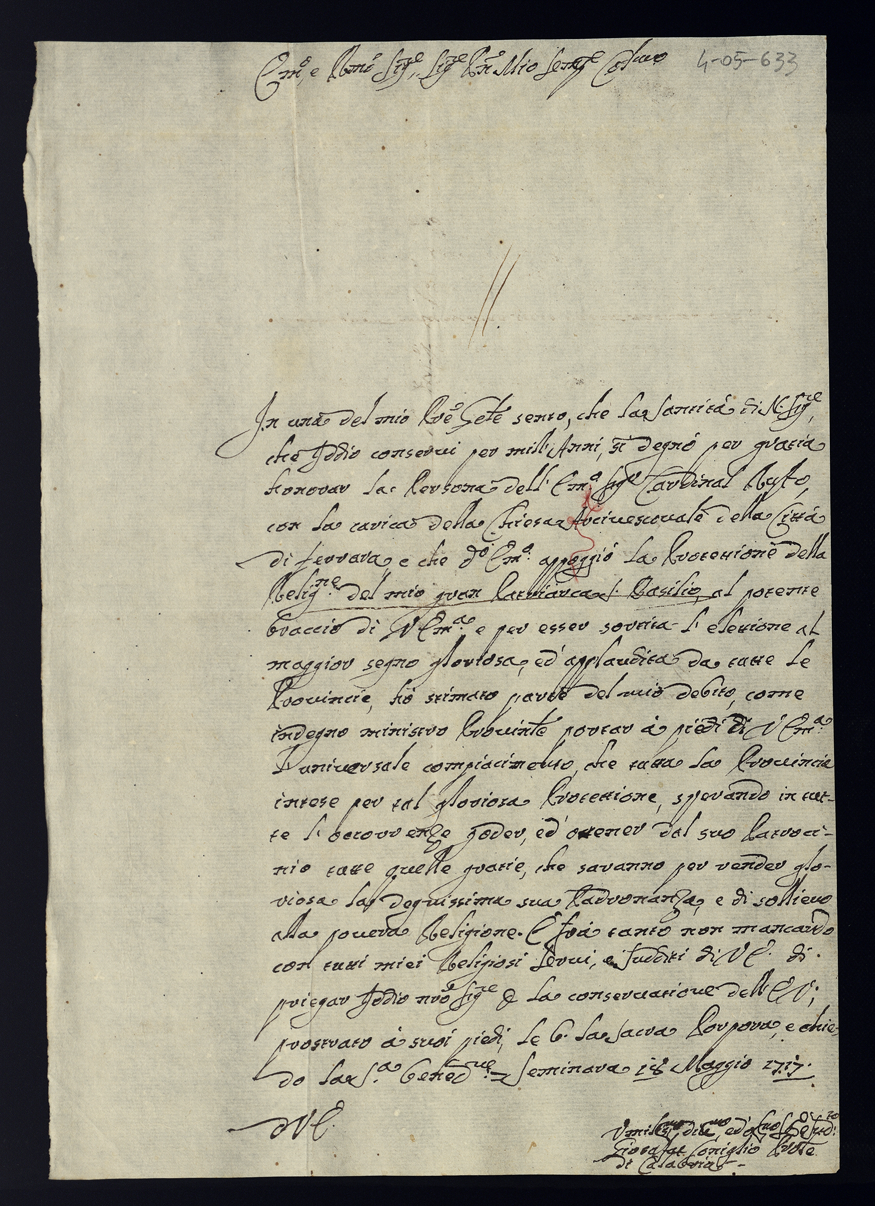 Em:º, e Rmo Sig:re, Sig:re P̃ne Mio Semp:e Col:mo
4-05-633
In una del mio Rm̃o Gn̄le sento, che la Santità di N. Sig:re,
che Iddio conservi per mill'Anni, si degnò per gratia
honorar la Persona dell'Em:º Sig:re Cardinal Ruffo,
con la carica della Chiesa Arcivescovale della Città
di Ferrara, e che d:º Em:º appoggiò la Protettione della
Relig:ne del mio gran Patriarca S. Basilio, al potente
braccio di V. Em:a e per esser sortita l'elettione al
maggior segno gloriosa, ed'applaudita da tutte le
Provincie, hò stimato parte del mio debito, come
indegno ministro Provin̄le portar à piedi di V. Em:a
l'universale compiacimento, che tutta la Provincia
intese per tal gloriosa Protettione, sperando in tut-
te l'occorrenze goder, ed'ottener dal suo Patroci-
nio tutte quelle gratie, che saranno per render glo-
riosa la degnissima sua Padronanza, e di sollievo
alla povera Religione. E frà tanto non mancando
con tutti miei Religiosi servi, e sudditi di V.E. di
priegar Iddio nr̃o Sig:re p la conservatione dell'E.V.,
prostrato à suoi piedi, le b. la sacra Porpora, e chie-
do la S.a bened:ne Seminara 18 Maggio 1717.
D V.E.
Umiliss:mo
Giosafat Coniglio Prõle
di Calabria